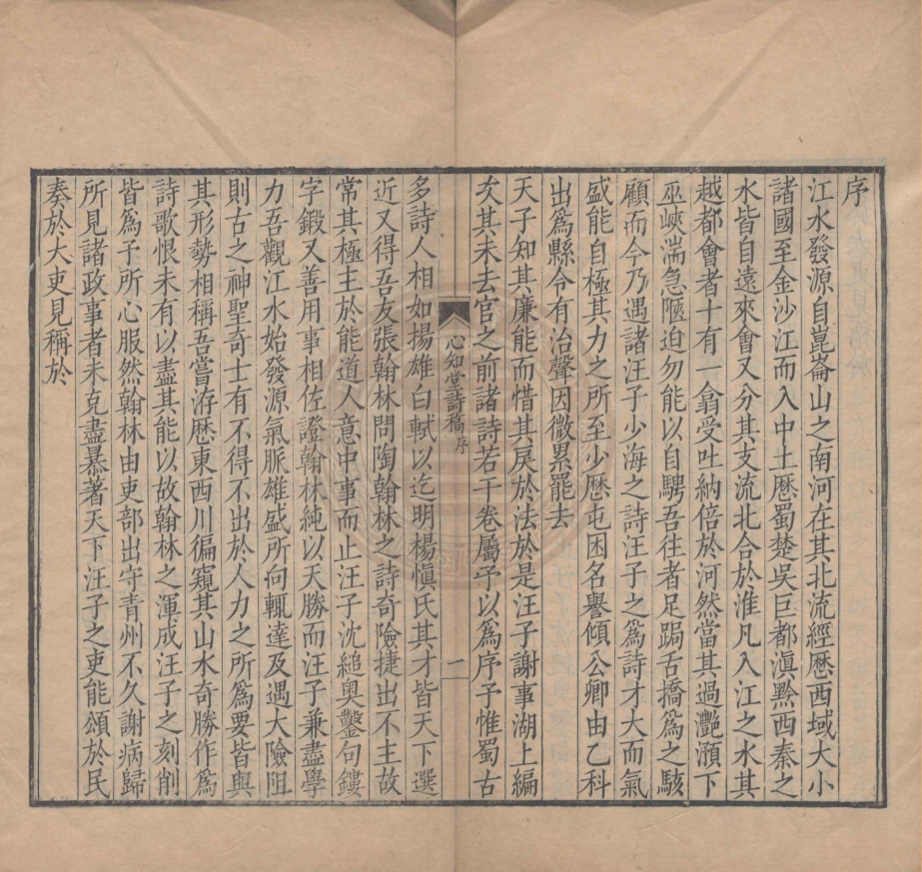 序
江水發源自崑崙山之南河在其北流經歷西域大小
諸國至金沙江而入中土歷蜀楚吳巨都滇黔西秦之
水皆自遠來會又分其支流北合於淮凡入江之水其
越都會者十有一翕受吐納倍於河然當其過灩澦下
巫峽湍急隘迫勿能以自騁吾往者足跼舌撟爲之駭
顧而今乃遇諸汪子少海之詩汪子之爲詩才大而氣
盛能自極其力之所至少歷屯困名譽傾公卿由乙科
出爲縣令有治聲因微累罷去
天子知其廉能而惜其戾於法於是汪子謝事湖上編
次其未去官之前諸詩若干卷屬予以爲序予惟蜀古
心知堂詩稿 序
一
多詩人相如揚雄白軾以迄明楊慎氏其才皆天下選
近又得吾友張翰林問陶翰林之詩奇險捷出不主故
常其極主於能道人意中事而止汪子沈縋奥鑿句鏤
字鍛又善用事相佐證翰林純以天勝而汪子兼盡學
力吾觀江水始發源氣脈雄盛所向輒達及遇大險阻
則古之神聖奇士有不得不出於人力之所爲要皆與
其形勢相稱吾嘗游歷東西川徧窺其山水奇勝作爲
詩歌恨未有以盡其能以故翰林之渾成汪子之刻削
皆爲予所心服然翰林由吏部出守青州不久謝病歸
所見諸政事者未克盡暴著天下汪子之吏能頌於民
奏於大吏見稱於